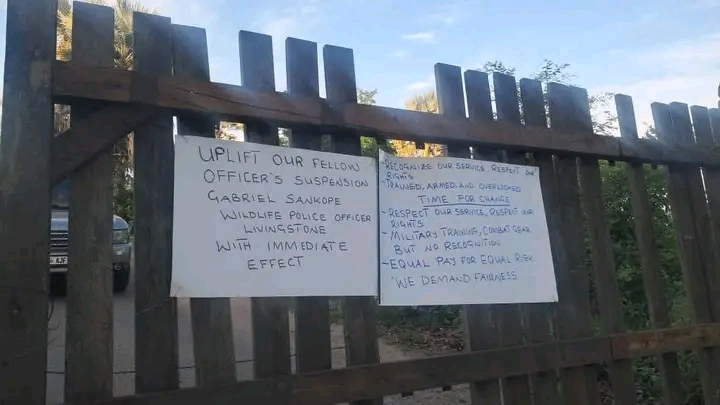 UPLIFT OUR FELLOW
OFFICER'S SUSPENSION
GABRIEL SANKOPE
WILDLIFE POLICE OFFICER
LIVINGSTONE
WITH IMMEDIATE
EFFECT
-RECOGNIZE OUR SERVICE, RESPECT OUR
RIGHTS
-TRAINED, ARMED AND OVERLOOKED
TIME FOR CHANGE
-RESPECT OUR SERVICE, RESPECT OUR
RIGHTS
-MILITARY TRAINING, COMBAT GEAR
BUT NO RECOGNITION
-EQUAL PAY FOR EQUAL RISK
"WE DEMAND FAIRNESS